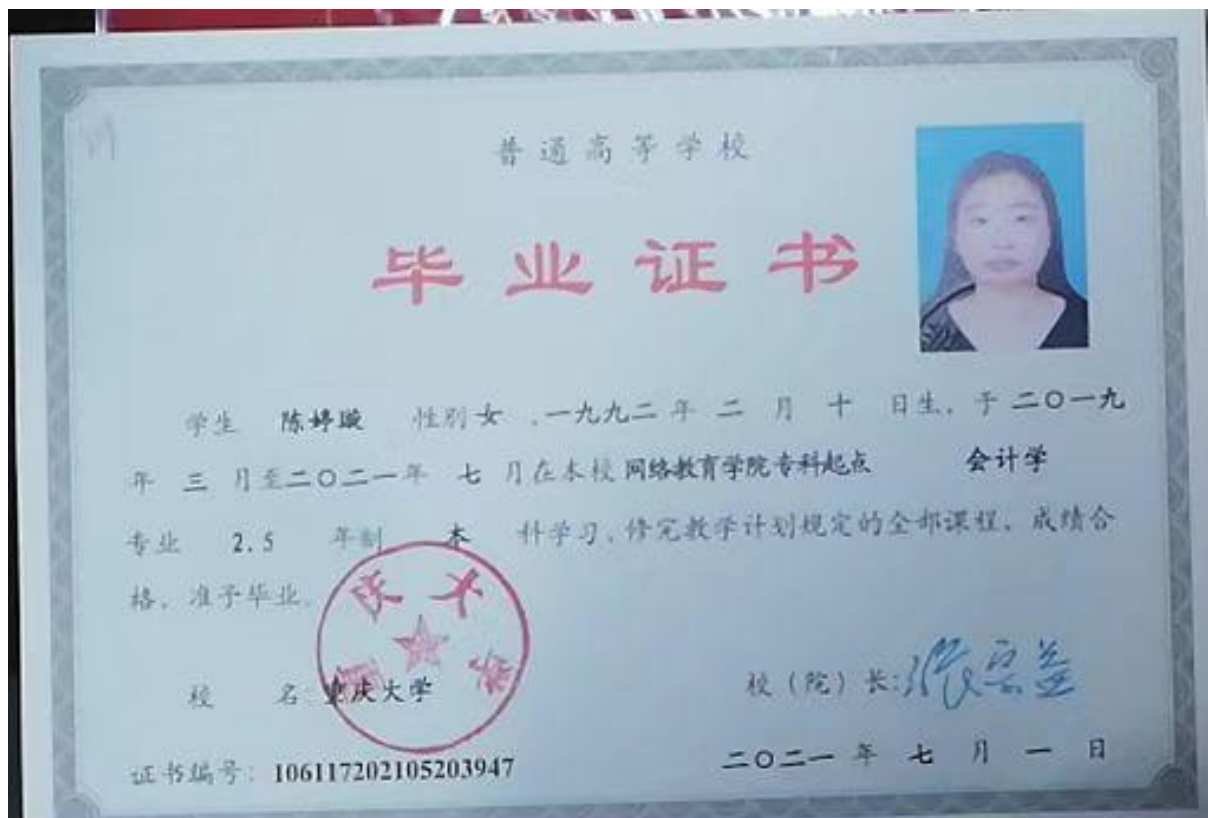 普通高等学校
毕业证书
学生 陈婷璇 性别 女 ，一九九二 年 二 月 十 日生，于 二〇一九
年 三 月至 二〇二一 年 七 月在本校 网络教育学院专科起点 会计学
专业 2.5 年制 本 科学习，修完教学计划规定的全部课程，成绩合
格，准予毕业。
校 名：重庆大学
校（院）长：张宗益
证书编号：106117202105203947
二〇二一 年 七 月 一 日